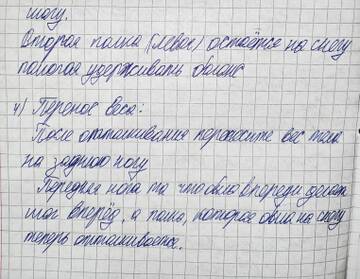 шагу.
Вторая палка (левая) остаётся на снегу
помогая удерживать баланс
4) Перенос веса:
После отталкивания переносите вес тела
на заднюю ногу
Передняя нога та что была впереди делает
шаг вперёд, а палка, которая была на снегу
теперь отталкивается.